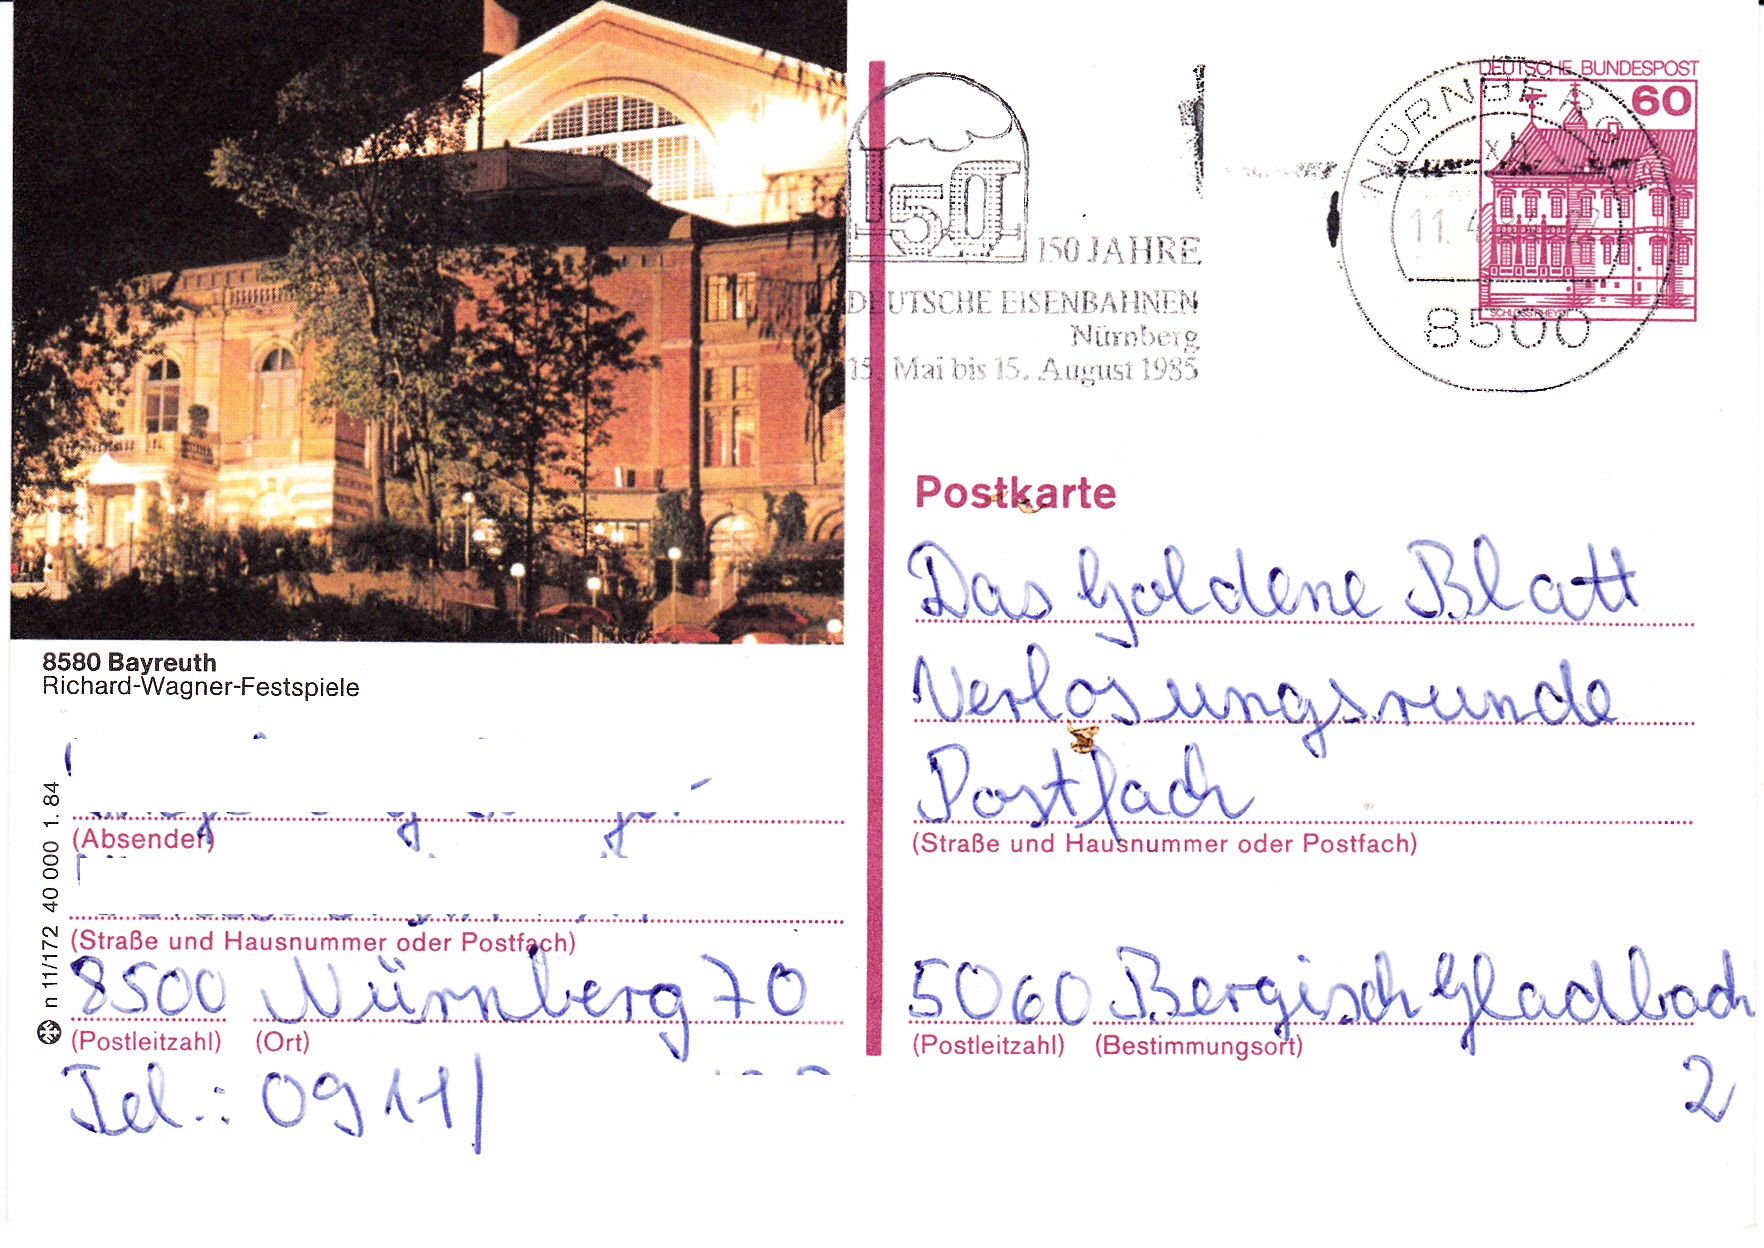 8580 Bayreuth
Richard-Wagner-Festspiele
(Absender)
(Straße und Hausnummer oder Postfach)
8500 Nürnberg 70
(Postleitzahl) (Ort)
Tel.: 0911/
n 11/172 40 000 1. 84
150
150 JAHRE
DEUTSCHE EISENBAHNEN
Nürnberg
15. Mai bis 15. August 1985
NÜRNBERG
8500
DEUTSCHE BUNDESPOST
60
SCHLOSS RHEYDT
Postkarte
Das Goldene Blatt
Verlosungsrunde
Postfach
(Straße und Hausnummer oder Postfach)
5060 Bergisch Gladbach
2
(Postleitzahl) (Bestimmungsort)